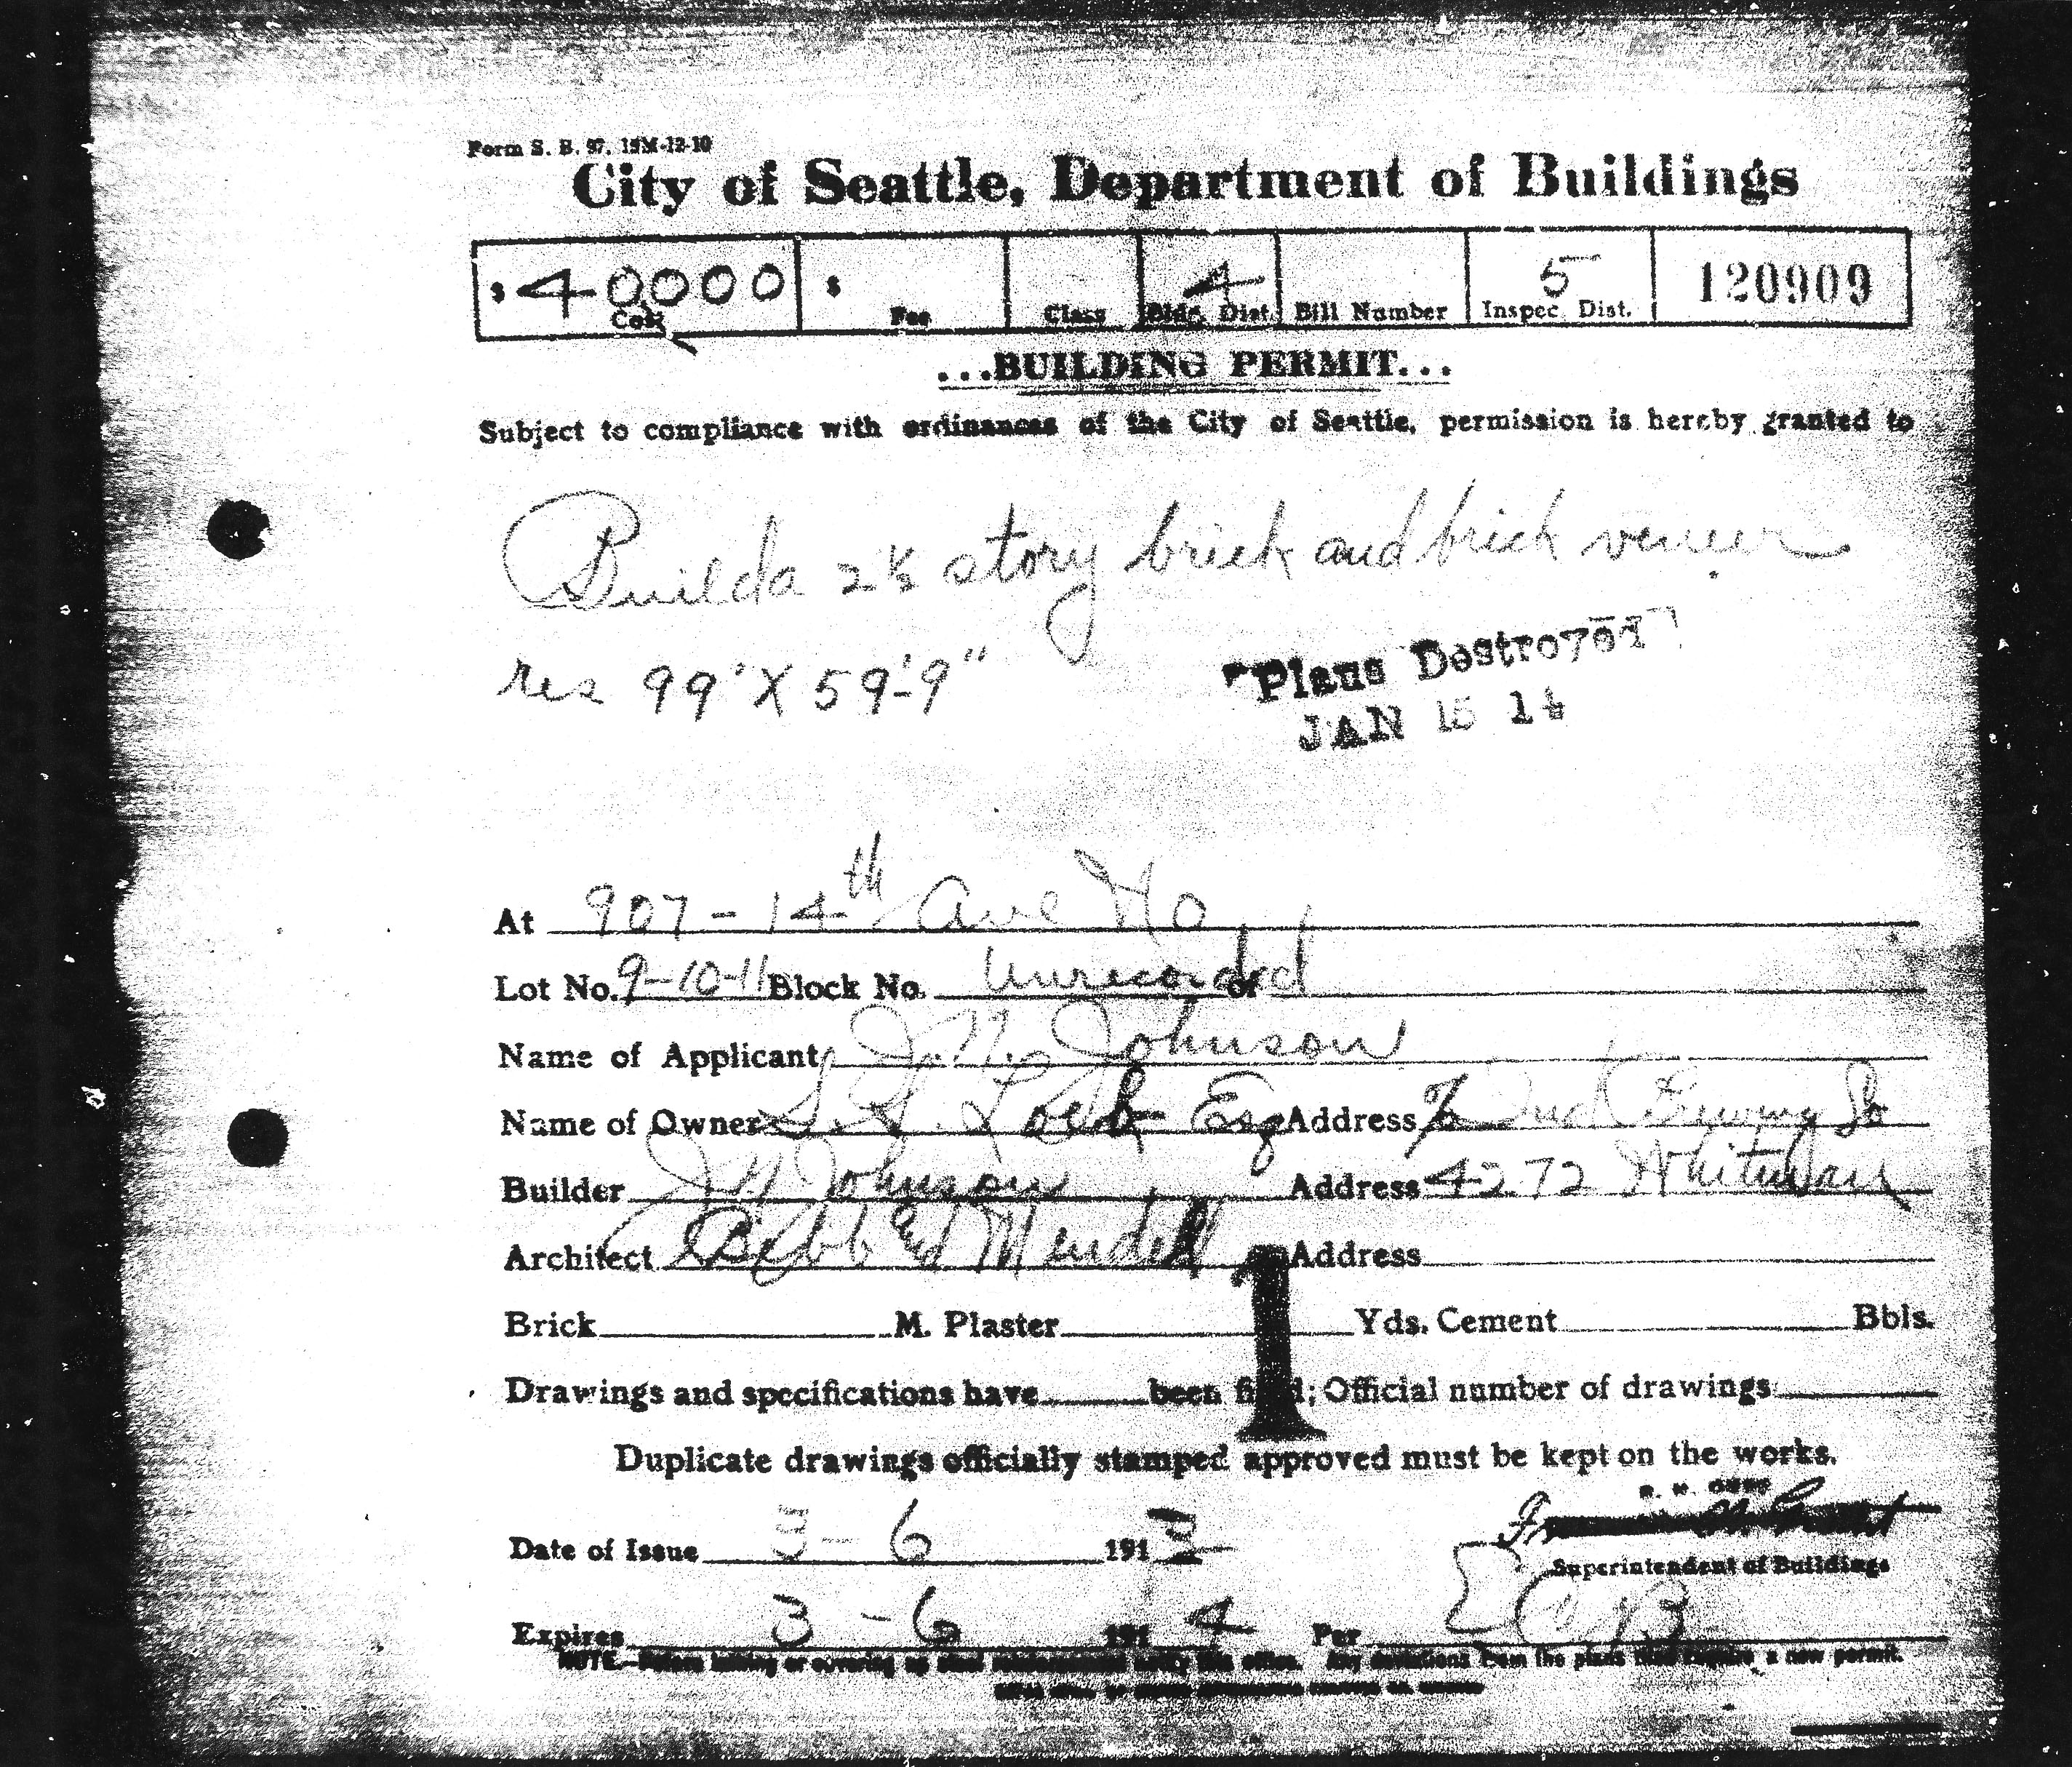 Form S. B. 97. 15M-12-10
City of Seattle, Department of Buildings
$ 40000 $ 4 5 120909
Cost Fee Class Bldg. Dist. Bill Number Inspec. Dist.
...BUILDING PERMIT...
Subject to compliance with ordinances of the City of Seattle, permission is hereby granted to
Build a 2½ story brick and brick veneer
res 99' X 59'-9"
"Plans Destroyed"
JAN 15 14
At 907-14th Ave No
Lot No. 9-10-11 Block No. Unrecorded of
Name of Applicant J. N. Johnson
Name of Owner Loeb Esq Address % Brewing Co
Builder J N Johnson Address 4272 Whitman
Architect Bebb and Mendel Address
Brick M. Plaster Yds. Cement Bbls.
1
Drawings and specifications have been filed; Official number of drawings
Duplicate drawings officially stamped approved must be kept on the works.
R. H. OBER
Date of Issue 3-6 1913
Superintendent of Buildings
Expires 3-6 1914 Per
NOTE.— this office. Any deviations from the plans will require a new permit.